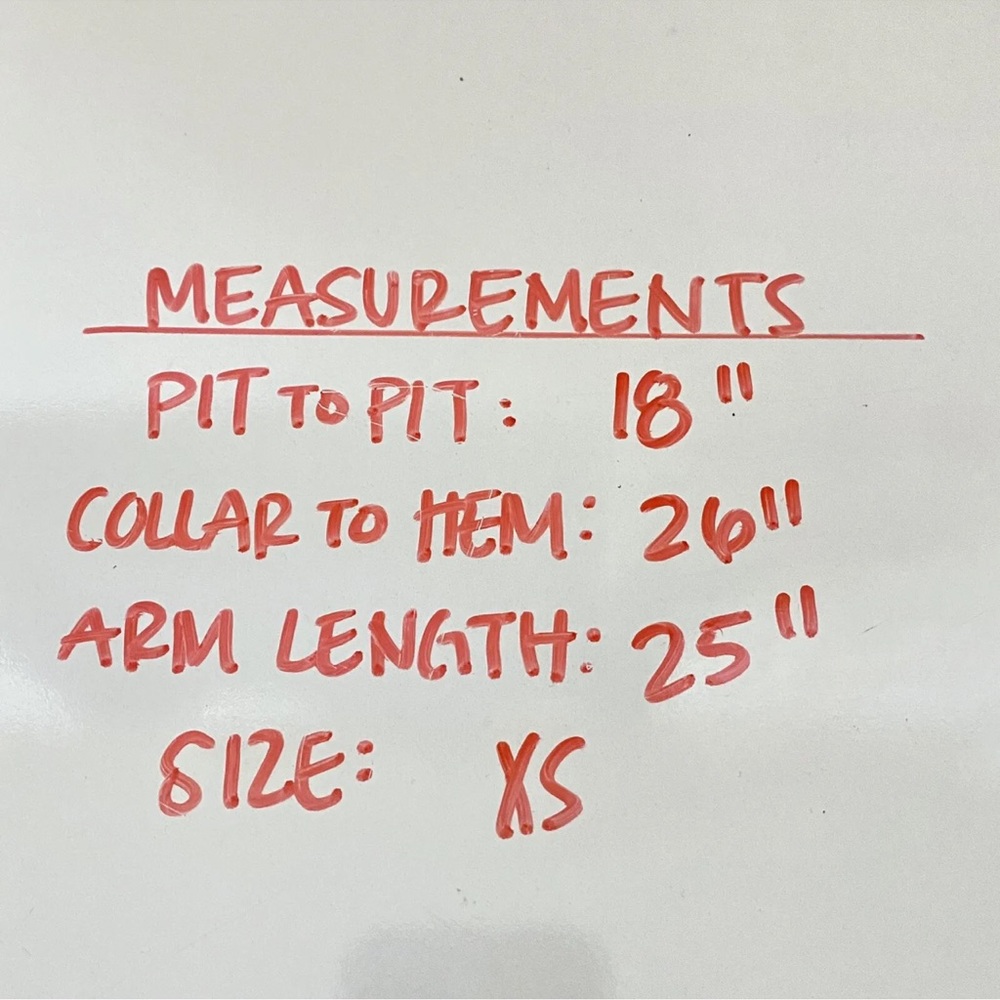 MEASUREMENTS
PIT TO PIT: 18"
COLLAR TO HEM: 26"
ARM LENGTH: 25"
SIZE: XS